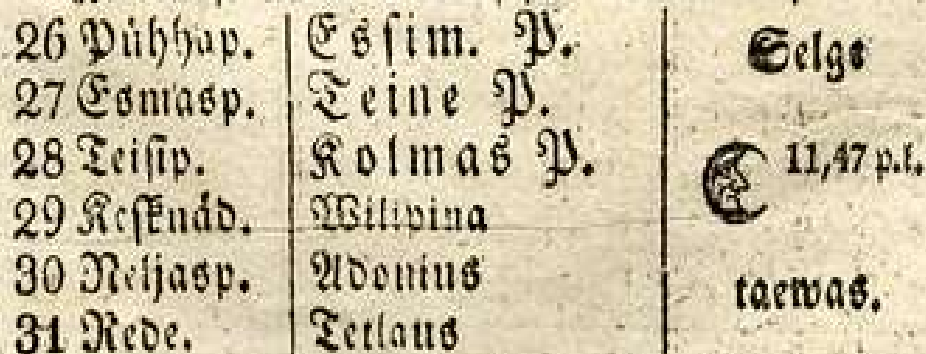 26 Pühhap. Essim. P. Selge
27 Esmasp. Teine P.
28 Teisip. Kolmas P. 11,47 p.l.
29 Kesknäd. Wilipina
30 Neljasp. Adonius taewas.
31 Rede. Tetlaus